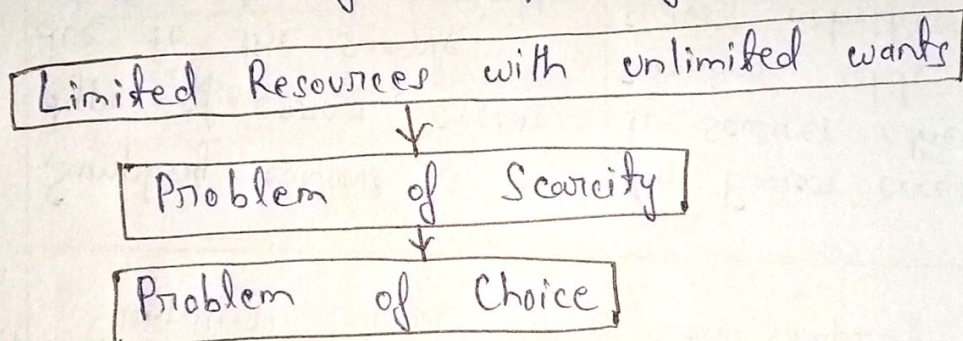 Limited Resources with unlimited wants
Problem of Scarcity
Problem of Choice